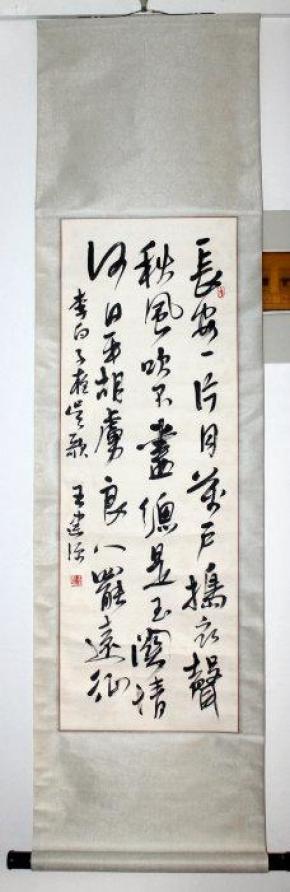 長安一片月萬戶擣衣聲
秋風吹不盡總是玉關情
何日平胡虜良人罷遠征
李白子夜吳歌 王建